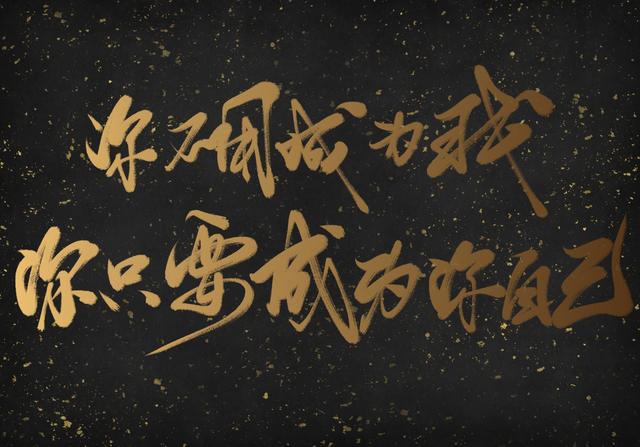 你不用成为我
你只要成为你自己